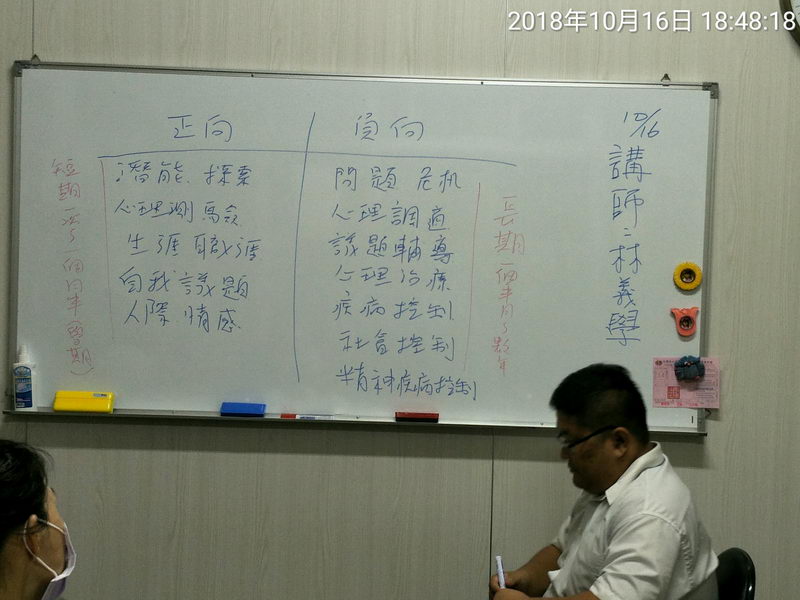 2018年10月16日 18:48:18
正向
負向
潛能 探索
心理測驗
生涯 職涯
自我議題
人際 情感
問題 危机
心理調適
議題輔導
心理治療
疾病控制
社會控制
精神疾病控制
長期一個半月~數年
10/16
講師:林義學